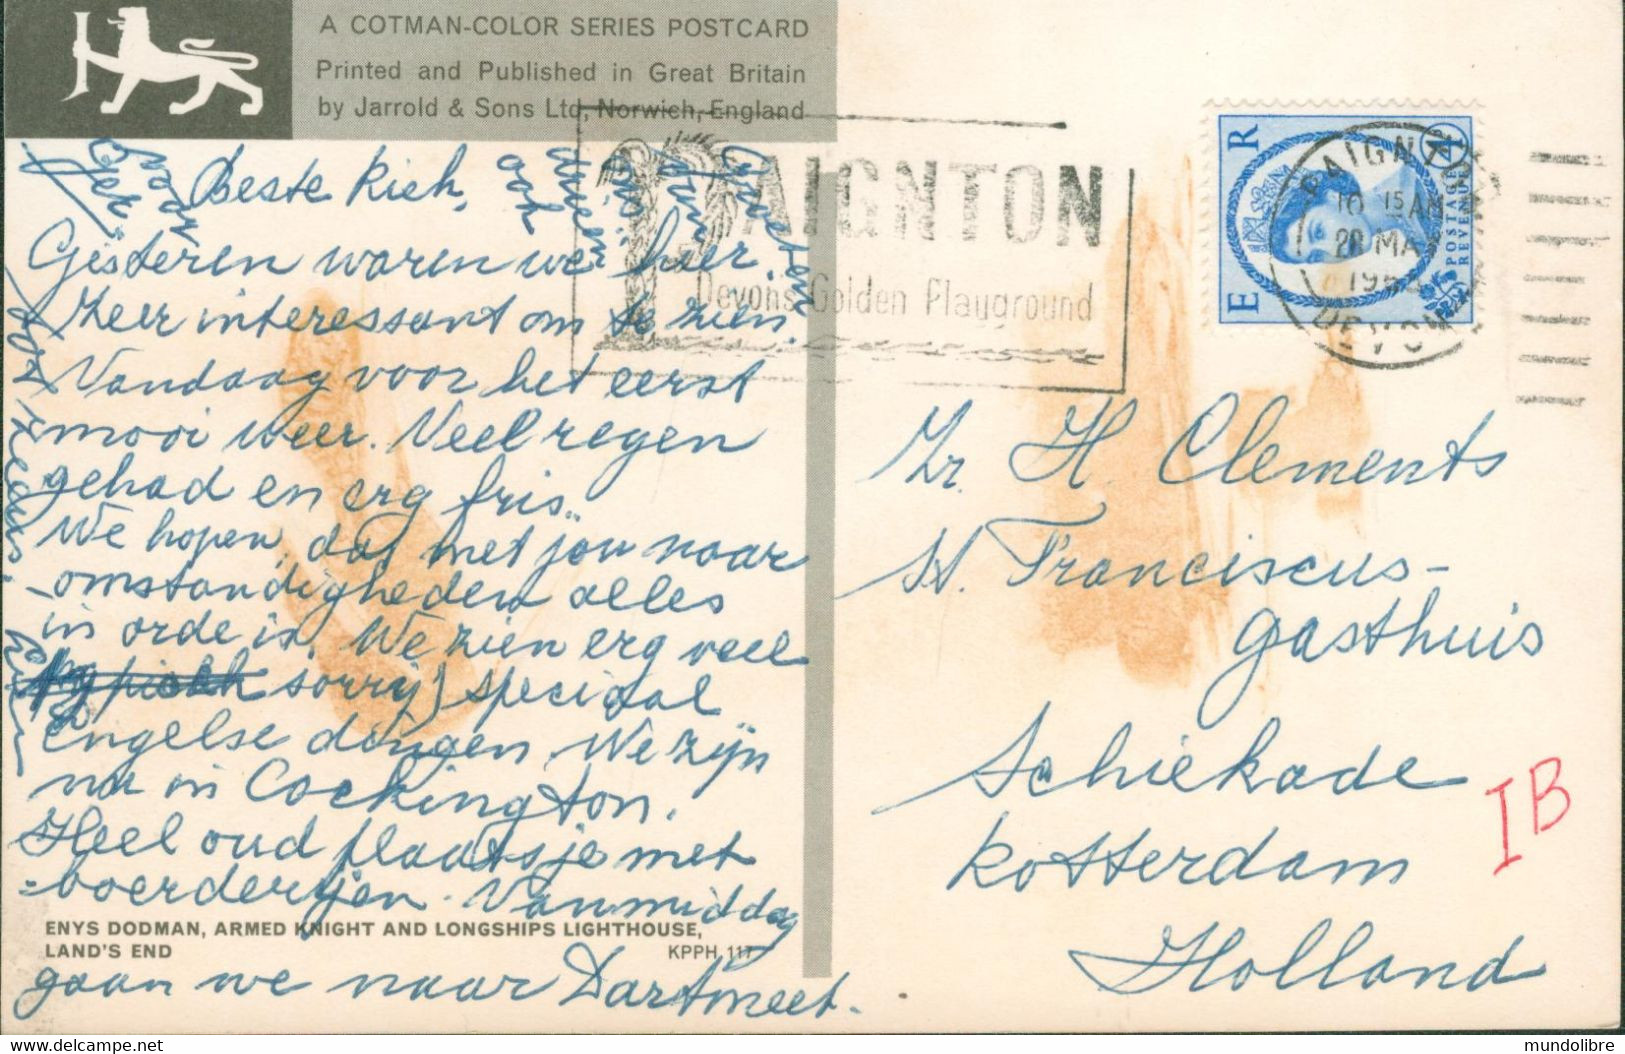 A COTMAN-COLOR SERIES POSTCARD
Printed and Published in Great Britain
by Jarrold & Sons Ltd, Norwich, England
Beste Riek,
Gisteren waren we hier.
Zeer interessant om te zien.
Vandaag voor het eerst
mooi weer. Veel regen
gehad en erg fris.
We hopen, dat met jou naar
omstandigheden alles
in orde is. We zien erg veel
sorry) speciaal
Engelse dingen. We zijn
nu in Cockington.
Heel oud plaatsje met
boerderijen. Vanmiddag
gaan we naar Dartmeet.
Groeten
ook
voor
ENYS DODMAN, ARMED KNIGHT AND LONGSHIPS LIGHTHOUSE,
LAND'S END
KPPH 117
PAIGNTON
Devons Golden Playground
E R
4D
POSTAGE
REVENUE
PAIGNTON
10 15 AM
DEVON
Mr. H. Clements
St. Franciscus-
gasthuis
Schiekade
Rotterdam
Holland
IB
delcampe.net
mundolibre